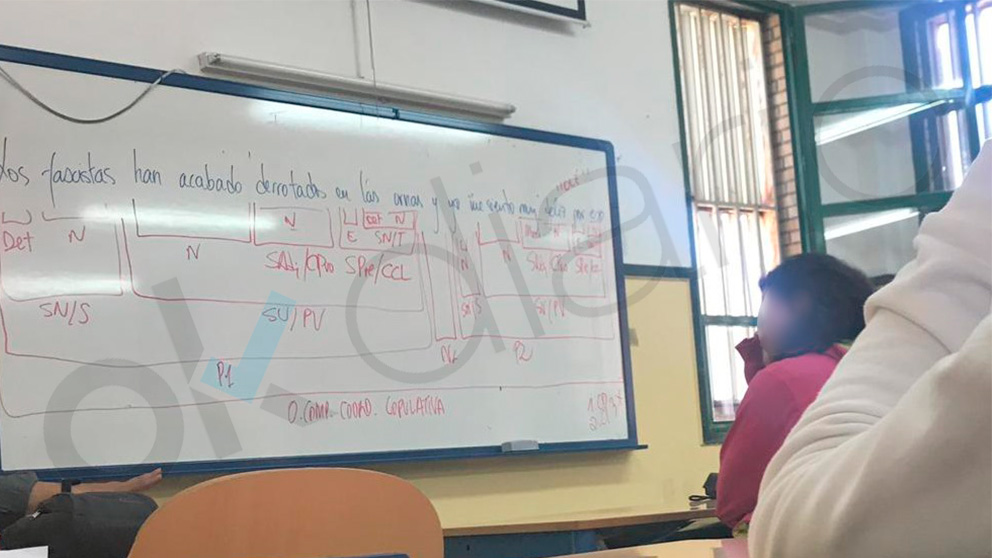 Los fascistas han acabado derrotados en las urnas y yo me siento muy feliz por eso
"OLE"
N Det N
Det N N E SN/T N N
SAdj/CPvo SPre/CCL SAdj/CPvo SPre/CC
SN/S SV/PV SN/S SV/PV
P1 NX P2
O. COMP. COORD. COPULATIVA
okdiario